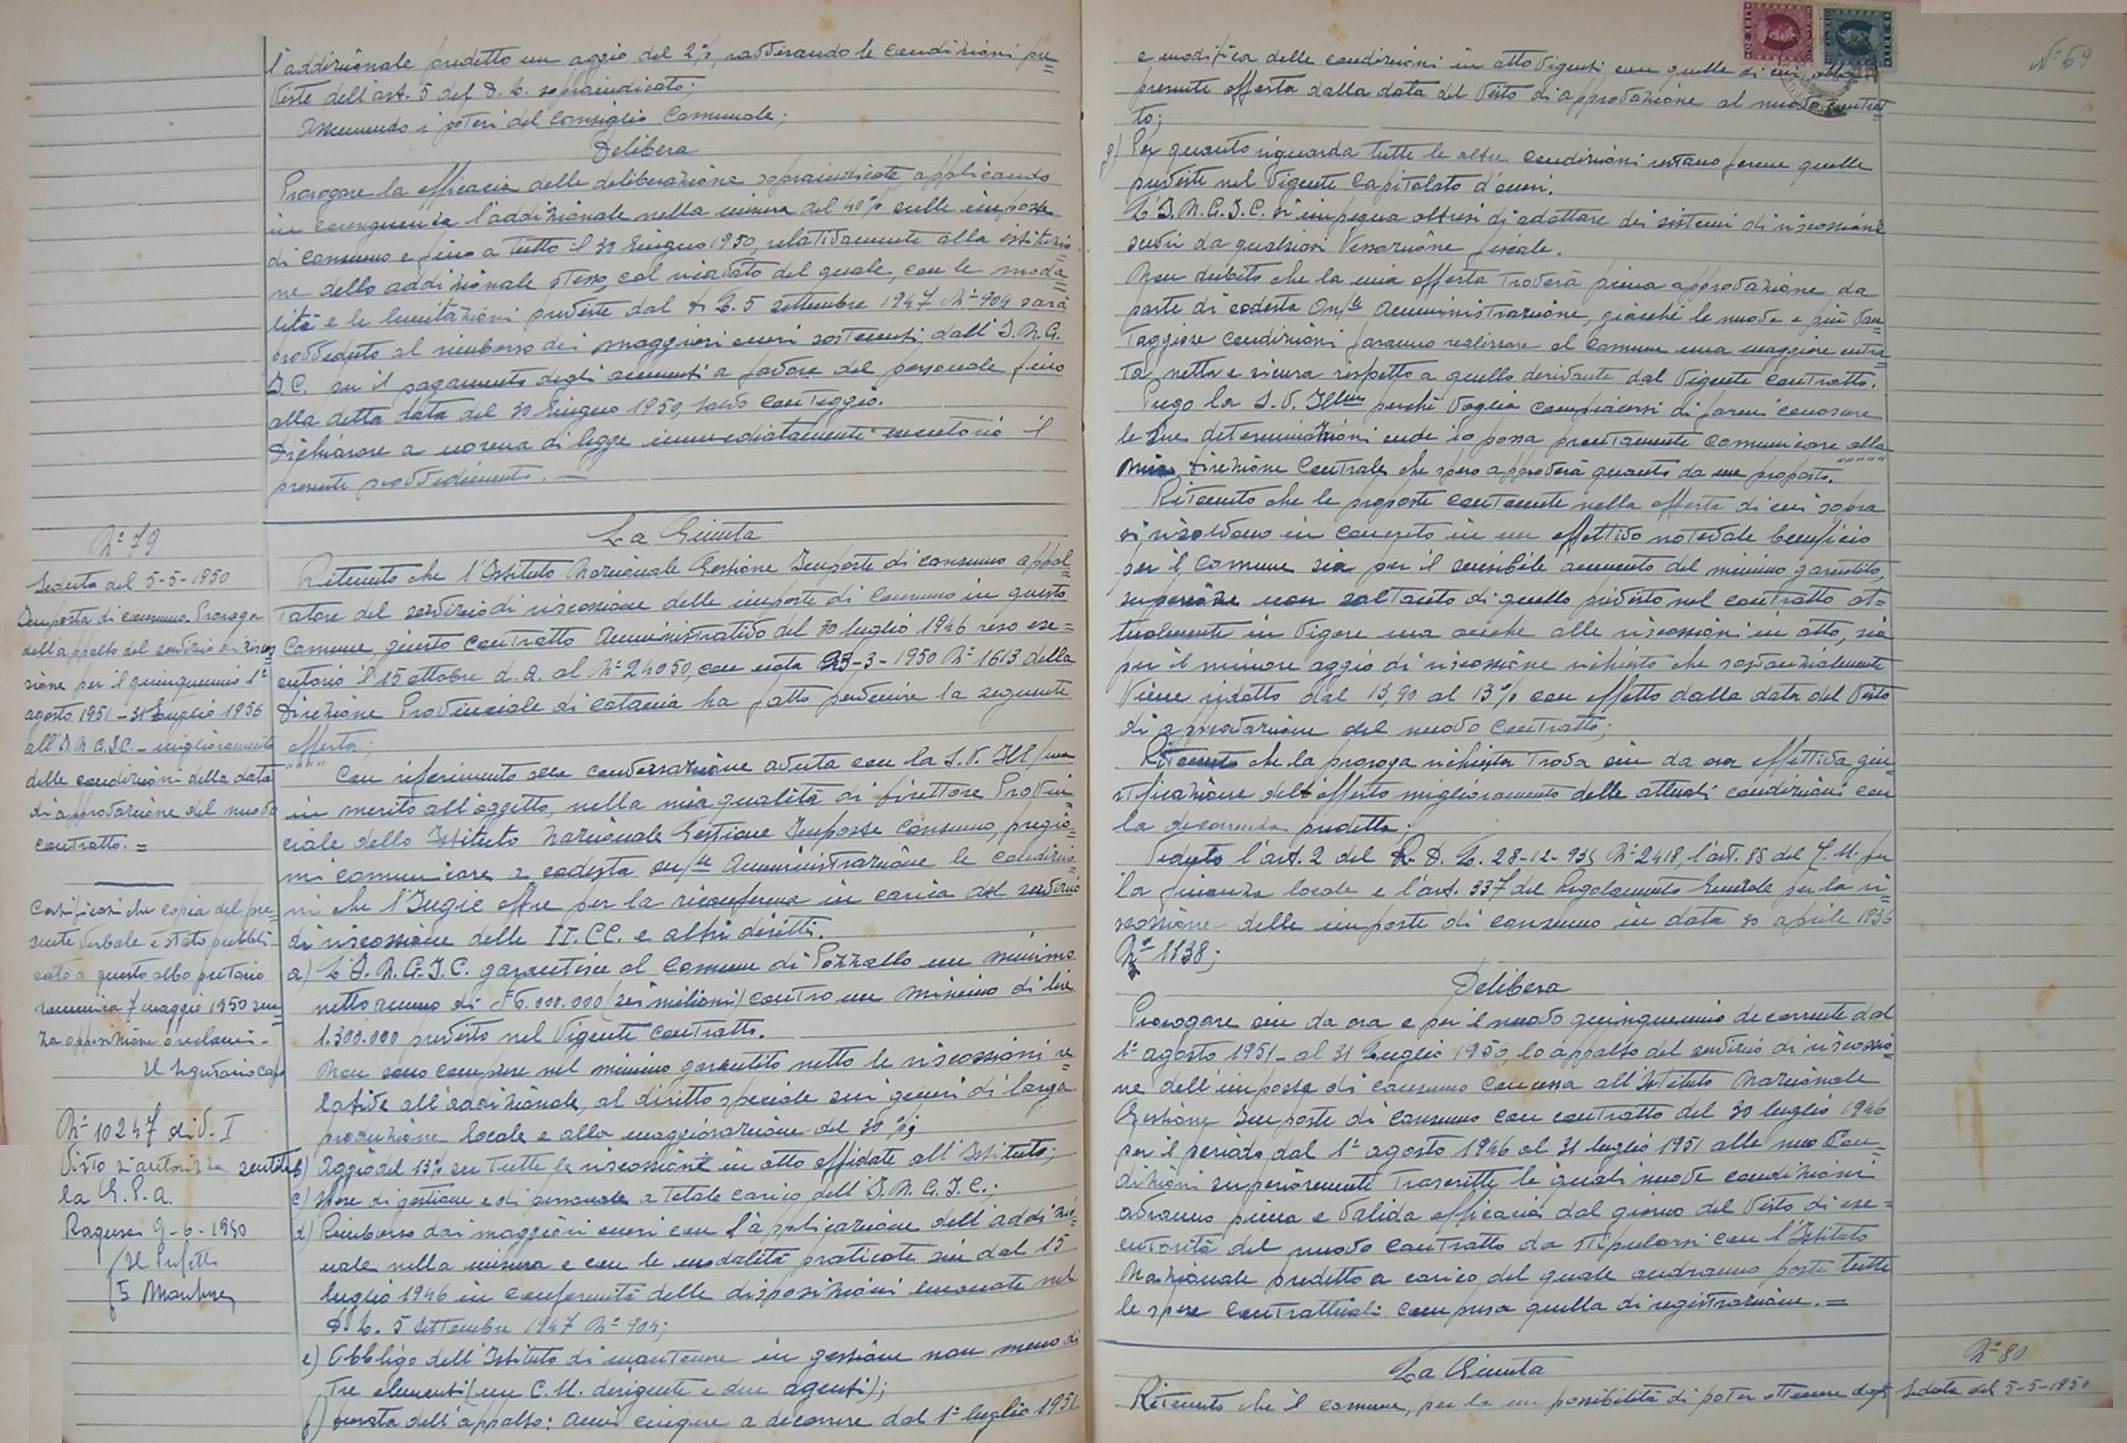 l'addizionale predetto un aggio del 2%, ravvisando le condizioni pre=
viste dell'art. 5 del D. L. sopraindicato;
Assumendo i poteri del Consiglio Comunale;
Delibera
Prorogare la efficacia delle deliberazione sopraindicate, applicando
in conseguenza l'addizionale nella misura del 40% sulle imposte
di consumo e fino a tutto il 30 Giugno 1950, relativamente alla istituzio=
ne dello addizionale stesso, col ricavato del quale, con le moda=
lità e le limitazioni previste dal D. L. 5 settembre 1947 N° 904 sarà
provveduto al rimborso dei maggiori oneri sostenuti dall'I.N.G.
I.C. per il pagamento degli aumenti a favore del personale fino
alla detta data del 30 Giugno 1950, salvo conteggio.
Dichiarare a norma di legge immediatamente esecutorio il
presente provvedimento. —
N° 79
Seduta del 5-5-1950
Imposta di consumo. Proroga
dell'appalto del servizio di riscos=
sione per il quinquennio 1°
agosto 1951 – 31 Luglio 1956
all'I.N.G.I.C. – miglioramento
delle condizioni della data
di approvazione del nuovo
contratto. =
Certificasi che copia del pre=
sente verbale è stato pubbli=
cato a questo albo pretorio
domenica 7 maggio 1950 sen=
za opposizione o reclami. –
Il Segretario capo
N° 10247 div. I
Visto si autorizza sentita
la G. P. A.
Ragusa 9-6-1950
Il Prefetto
La Giunta
Ritenuto che l'Istituto Nazionale Gestione Imposte di consumo appal=
tatore del servizio di riscossione delle imposte di consumo in questo
Comune, giusto contratto Amministrativo del 30 luglio 1946 reso ese=
cutorio il 15 ottobre d. a. al N° 24050, con nota 25-3-1950 N° 1613 della
Direzione Provinciale di Catania ha fatto pervenire la seguente
offerta;
"""" Con riferimento alla conversazione avuta con la S. V. Ill/ma
in merito all'oggetto, nella mia qualità di Direttore Provin
ciale dello Istituto Nazionale Gestione Imposte Consumo, pregio=
mi comunicare a codesta on/le Amministrazione le condizio=
ni che l'Ingic offre per la riconferma in carica del servizio
di riscossione delle II. CC. e altri diritti.
a) L'I. N. G. I. C. garantisce al Comune di Pozzallo un minimo
netto annuo di £ 6.000.000 (sei milioni) contro un minimo di lire
1.300.000 previsto nel vigente contratto.
Non sono comprese nel minimo garantito netto le riscossioni re=
lative all'addizionale, al diritto speciale sui generi di larga
produzione locale e alla maggiorazione del 30%;
b) Aggio del 13% su tutte le riscossioni in atto affidate all'Istituto;
c) Spese di gestione e di personale a totale carico dell'I. N. G. I. C.;
d) Rimborso dei maggiori oneri con l'applicazione dell'addizio=
nale nella misura e con le modalità praticate sin dal 15
luglio 1946 in conformità delle disposizioni emanate nel
D. L. 5 settembre 1947 N° 904;
e) Obbligo dell'Istituto di mantenere in gestione non meno di
tre elementi (un C. U. dirigente e due agenti);
f) Durata dell'appalto: anni cinque a decorrere dal 1° luglio 1951
N° 69
e modifica delle condizioni in atto vigenti con quelle di cui alla
presente offerta dalla data del visto di approvazione al nuovo contrat=
to;
g) Per quanto riguarda tutte le altre condizioni restano ferme quelle
previste nel vigente Capitolato d'oneri.
L'I. N. G. I. C. si impegna altresì di adottare dei sistemi di riscossioni
scevri da qualsiasi vessazione fiscale.
Non dubito che la mia offerta troverà piena approvazione da
parte di codesta On/le Amministrazione, giacché le nuove e più van=
taggiose condizioni faranno realizzare al Comune una maggiore entra=
ta, netta e sicura rispetto a quello derivante dal vigente contratto.
Prego la S. V. Ill/ma perché voglia compiacersi di farmi conoscere
le Sue determinazioni onde io possa prontamente comunicare alla
mia Direzione Centrale, che spero approverà quanto da me proposto. """"
Ritenuto che le proposte contenute nella offerta di cui sopra
si risolvono in concreto in un effettivo notevole beneficio
per il Comune sia per il sensibile aumento del minimo garantito,
superiore non soltanto di quello previsto nel contratto at=
tualmente in vigore ma anche alle riscossioni in atto, sia
per il minore aggio di riscossione richiesto che sostanzialmente
viene ridotto dal 13,90 al 13% con effetto dalla data del visto
di approvazione del nuovo contratto;
Ritenuto che la proroga richiesta trova sin da ora effettiva giu=
stificazione dell'offerto miglioramento delle attuali condizioni con
la decorrenza predetta;
Veduto l'art. 2 del R. D. L. 28-12-935 N° 2418, l'art. 88 del T. U. per
la finanza locale e l'art. 337 del Regolamento Generale per la ri=
scossione delle imposte di consumo in data 30 aprile 1936
N° 1138;
Delibera
Prorogare sin da ora e per il nuovo quinquennio decorrente dal
1° agosto 1951 – al 31 Luglio 1956, lo appalto del servizio di riscossio=
ne dell'imposta di consumo concessa all'Istituto Nazionale
Gestione Imposte di consumo con contratto del 30 luglio 1946
per il periodo dal 1° agosto 1946 al 31 luglio 1951 alle nuove con=
dizioni superiormente trascritte le quali nuove condizioni
avranno piena e valida efficacia dal giorno del visto di ese=
cutorietà del nuovo contratto da stipularsi con l'Istituto
Nazionale predetto a carico del quale andranno poste tutte
le spese contrattuali compresa quella di registrazione. =
La Giunta
Ritenuto che il comune, per la impossibilità di poter ottenere dagli
N° 80
Seduta del 5-5-1950